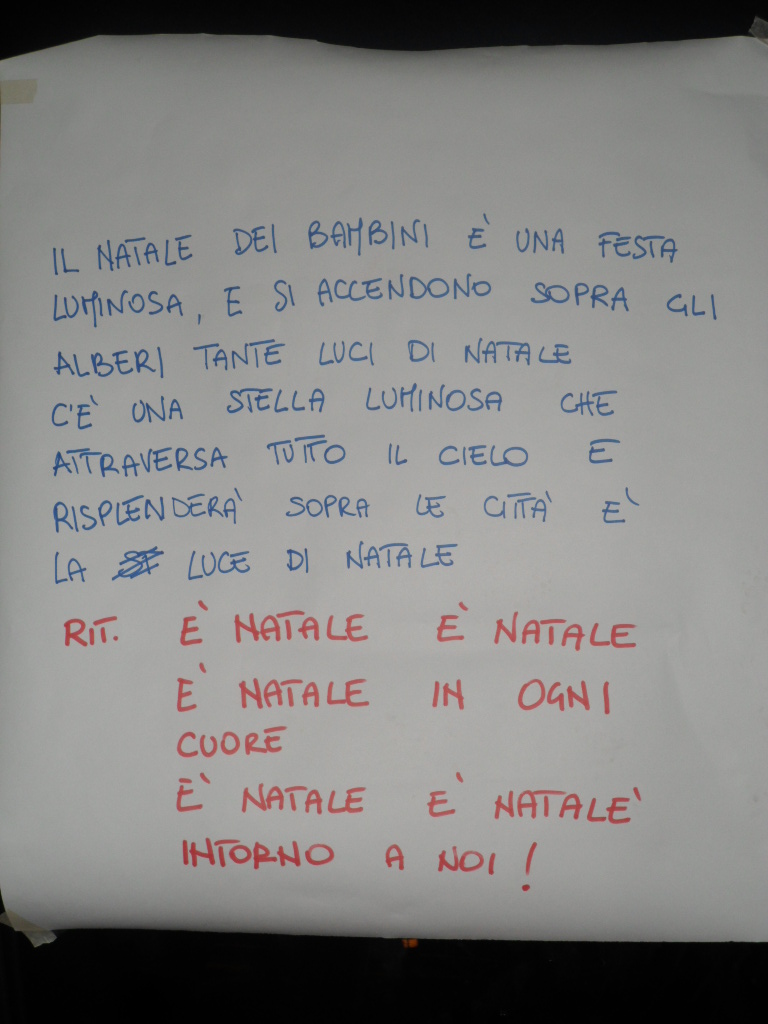 IL NATALE DEI BAMBINI È UNA FESTA
LUMINOSA, E SI ACCENDONO SOPRA GLI
ALBERI TANTE LUCI DI NATALE
C'È UNA STELLA LUMINOSA CHE
ATTRAVERSA TUTTO IL CIELO E
RISPLENDERÀ SOPRA LE CITTÀ E'
LA LUCE DI NATALE
RIT. È NATALE È NATALE
È NATALE IN OGNI
CUORE
È NATALE È NATALE'
INTORNO A NOI!